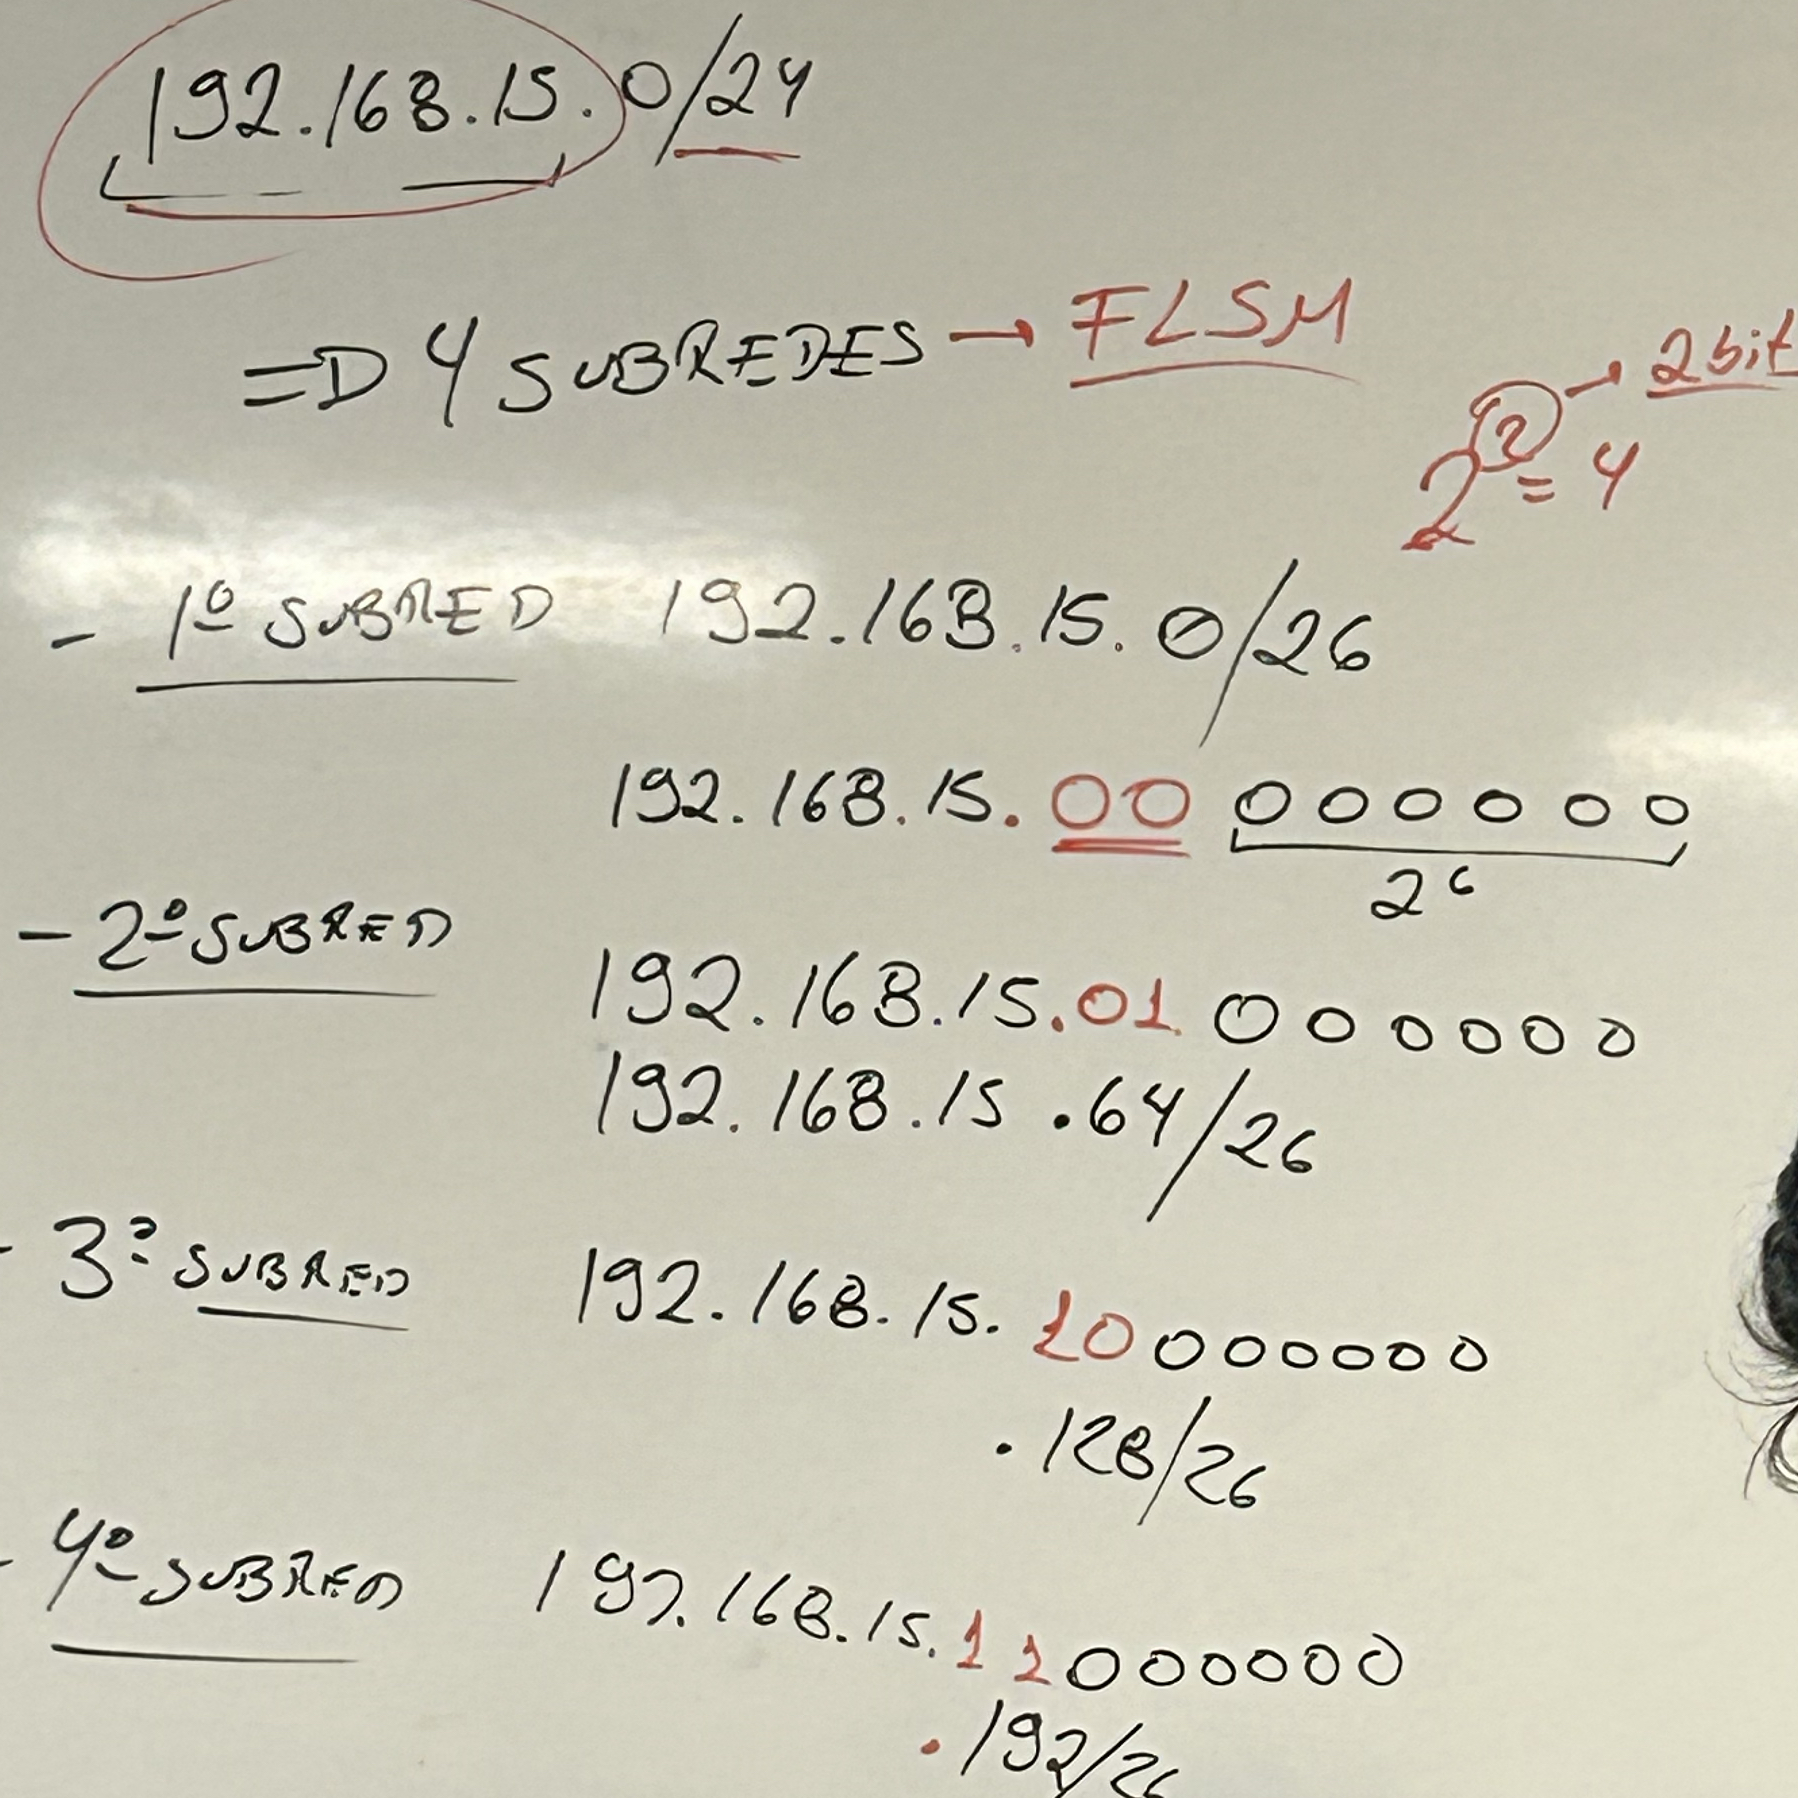 192.168.15.0/24
=D 4 SUBREDES → FLSM
→ 2bit
2² = 4
- 1º SUBRED 192.168.15.0/26
192.168.15.00 000000
2⁶
- 2º SUBRED
192.168.15.01 000000
192.168.15.64/26
- 3º SUBRED 192.168.15.10000000
.128/26
- 4º SUBRED 192.168.15.11000000
.192/26